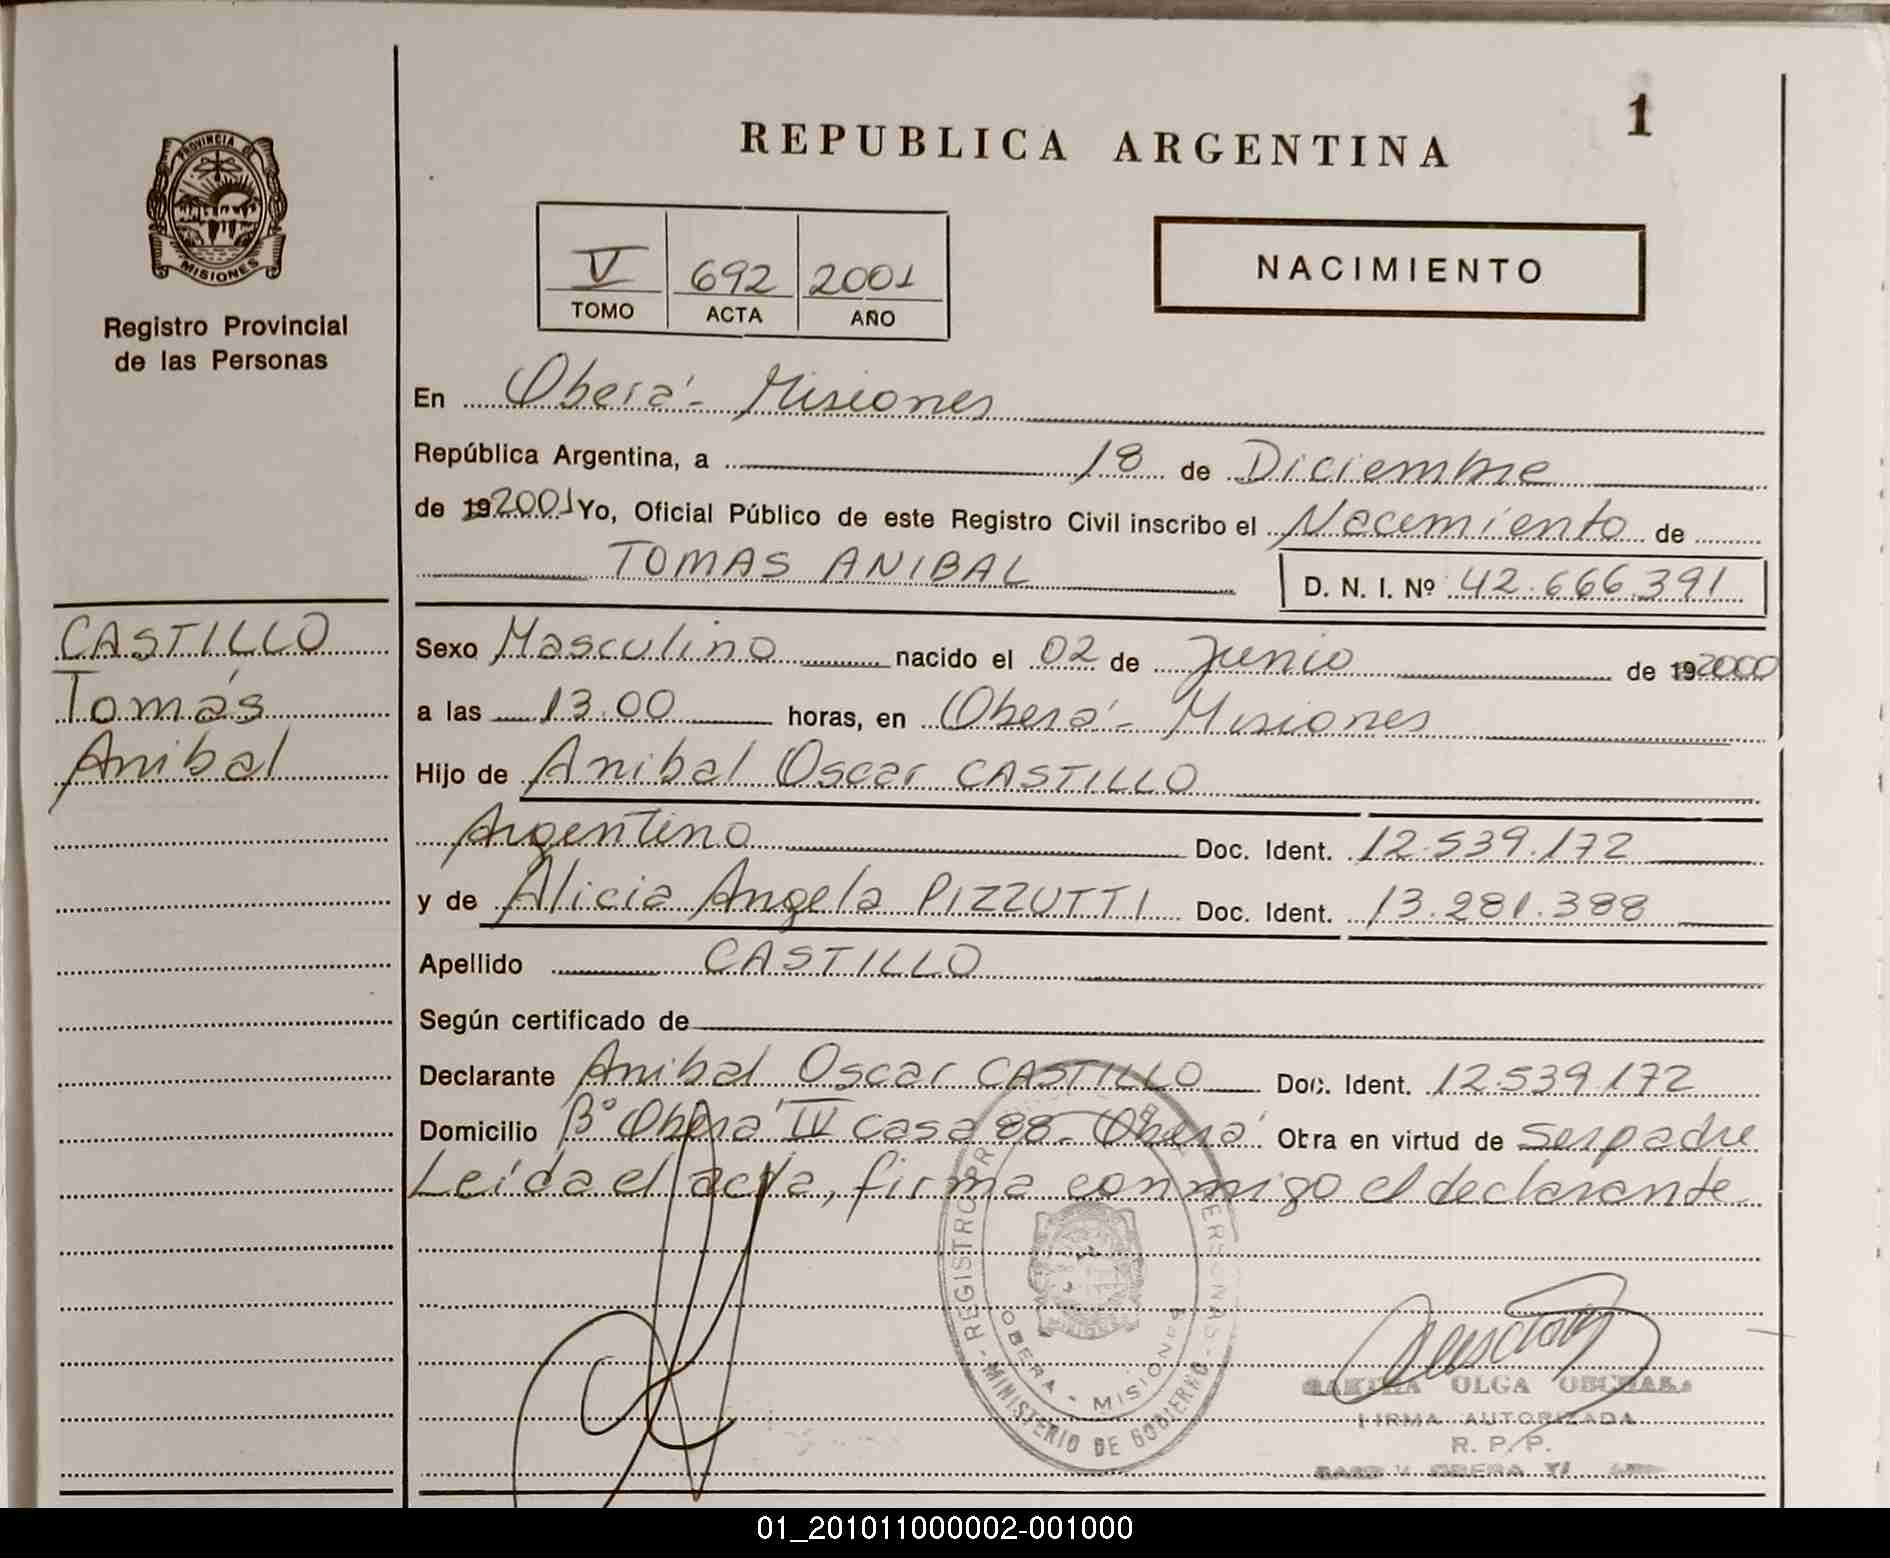 REPUBLICA ARGENTINA
1
PROVINCIA DE
MISIONES
Registro Provincial
de las Personas
V 692 2001
TOMO ACTA AÑO
NACIMIENTO
En Oberá - Misiones
República Argentina, a 18 de Diciembre
de 19 2001 Yo, Oficial Público de este Registro Civil inscribo el Nacimiento de
TOMAS ANIBAL D. N. I. Nº 42.666.391
CASTILLO
Tomás
Anibal
Sexo Masculino nacido el 02 de Junio de 19 2000
a las 13.00 horas, en Oberá - Misiones
Hijo de Anibal Oscar CASTILLO
Argentino Doc. Ident. 12.539.172
y de Alicia Angela PIZZUTTI Doc. Ident. 13.281.388
Apellido CASTILLO
Según certificado de
Declarante Anibal Oscar CASTILLO Doc. Ident. 12.539.172
Domicilio Bº Oberá IV casa 88 - Oberá Obra en virtud de ser padre
Leída el acta, firma conmigo el declarante
REGISTRO PR PERSONAS - MINISTERIO DE GOBIERNO -
OBERA - MISIONES
OLGA
FIRMA AUTORIZADA
R. P. P.
OBERA
01_201011000002-001000